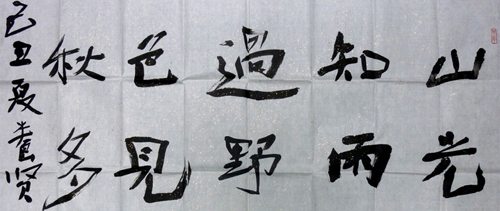 山光
知雨
過野
色見
秋多
己丑夏養贤